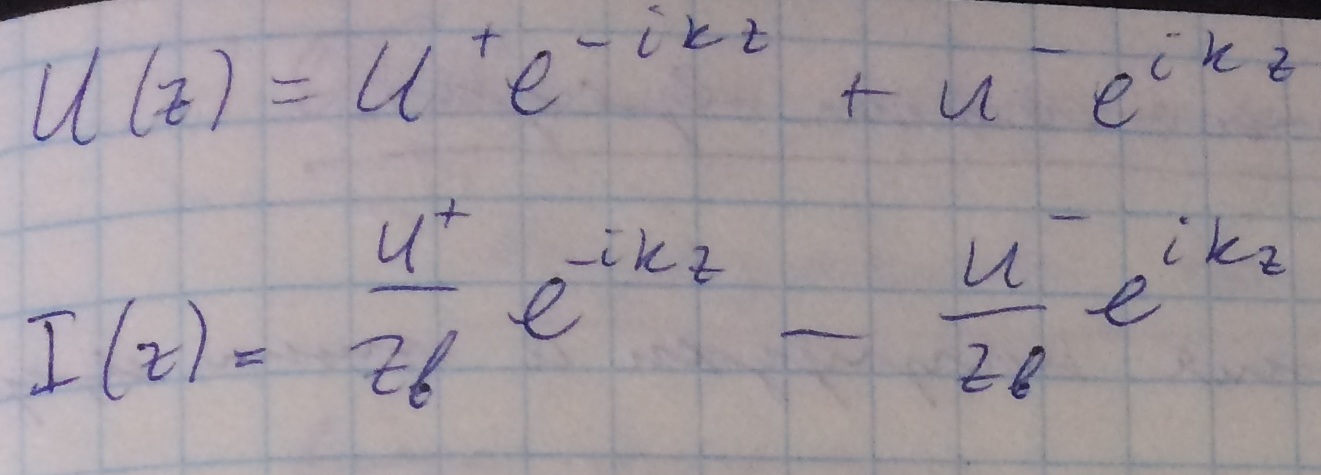 U(z) = U⁺e^{-ikz} + U⁻e^{ikz}
I(z) = \frac{U⁺}{z_в} e^{-ikz} - \frac{U⁻}{z_в} e^{ikz}